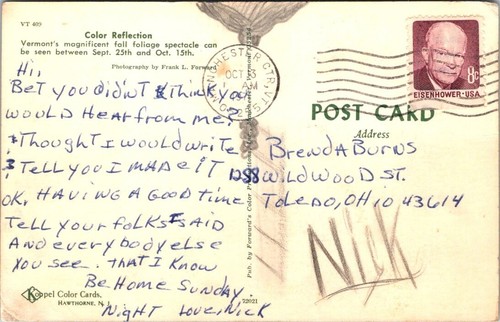 VT 409
Color Reflection
Vermont's magnificent fall foliage spectacle can
be seen between Sept. 25th and Oct. 15th.
Photography by Frank L. Forward
Hi,
Bet you didn't think you
would hear from me?
Thought I would write
& Tell you I made it
OK, Having a good time
Tell your folks I said
And everybody else
You see. That I know
Be Home Sunday.
Night Love, Nick
Koppel Color Cards.
HAWTHORNE, N.J.
22021
Pub. by Forward's Color Productions
MANCHESTER CTR, VT.
OCT 13
AM
8¢
EISENHOWER·USA
POST CARD
Address
Brenda Burns
Wildwood St.
Toledo, Ohio 43614
Nick